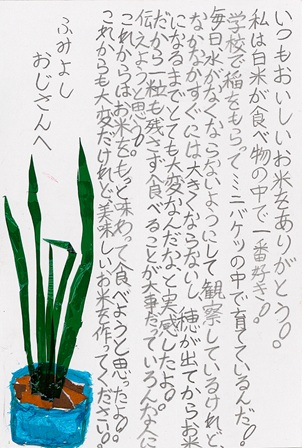 いつもおいしいお米をありがとう。
私は白米が食べ物の中で一番好き。
学校で稲をもらってミニバケツの中で育てているんだ。
毎日水がなくならないようにして観察しているけれど、
なかなかすぐには大きくならないし、穂が出てからお米
になるまでとても大変なんだなと実感したよ。
だから一粒も残さず食べることが大事だっていろんな人に
伝えようと思う。
これからはお米をもっと味わって食べようと思ったよ。
これからも大変だけれど美味しいお米を作ってください。
ふみよし
おじさんへ